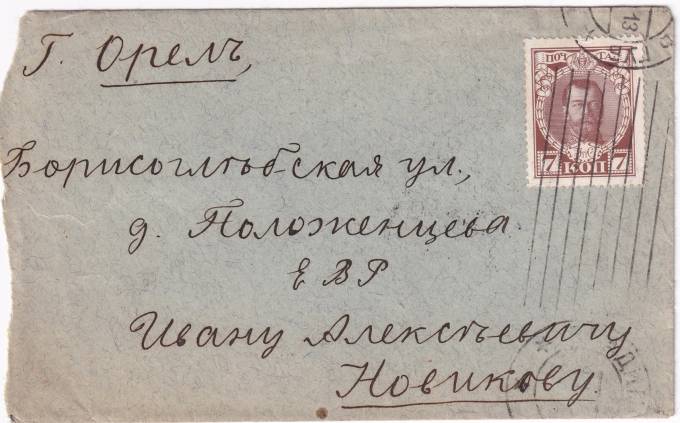 Г. Орелъ,
Борисоглѣбская ул.,
д. Положенцева
Е В Р
Ивану Алексѣевичу
Новикову.
ПОЧТА
7 КОП 7
13